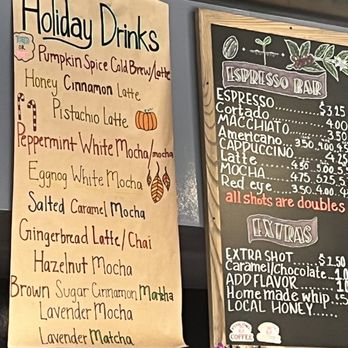 Holiday Drinks
Pumpkin Spice Cold Brew/latte
Honey Cinnamon Latte
Pistachio Latte
Peppermint White Mocha/mocha
Eggnog White Mocha
Salted Caramel Mocha
Gingerbread Latte/Chai
Hazelnut Mocha
Brown Sugar Cinnamon Matcha
Lavender Mocha
Lavender Matcha
ESPRESSO BAR
ESPRESSO........$3.25
Cortado.........4.00
MACCHIATO
Americano 3.50..4.00
CAPPUCCINO
Latte
MOCHA
Red eye
all shots are doubles
EXTRAS
EXTRA SHOT.....$1.50
Caramel/chocolate
ADD FLAVOR
Homemade whip
LOCAL HONEY
COFFEE